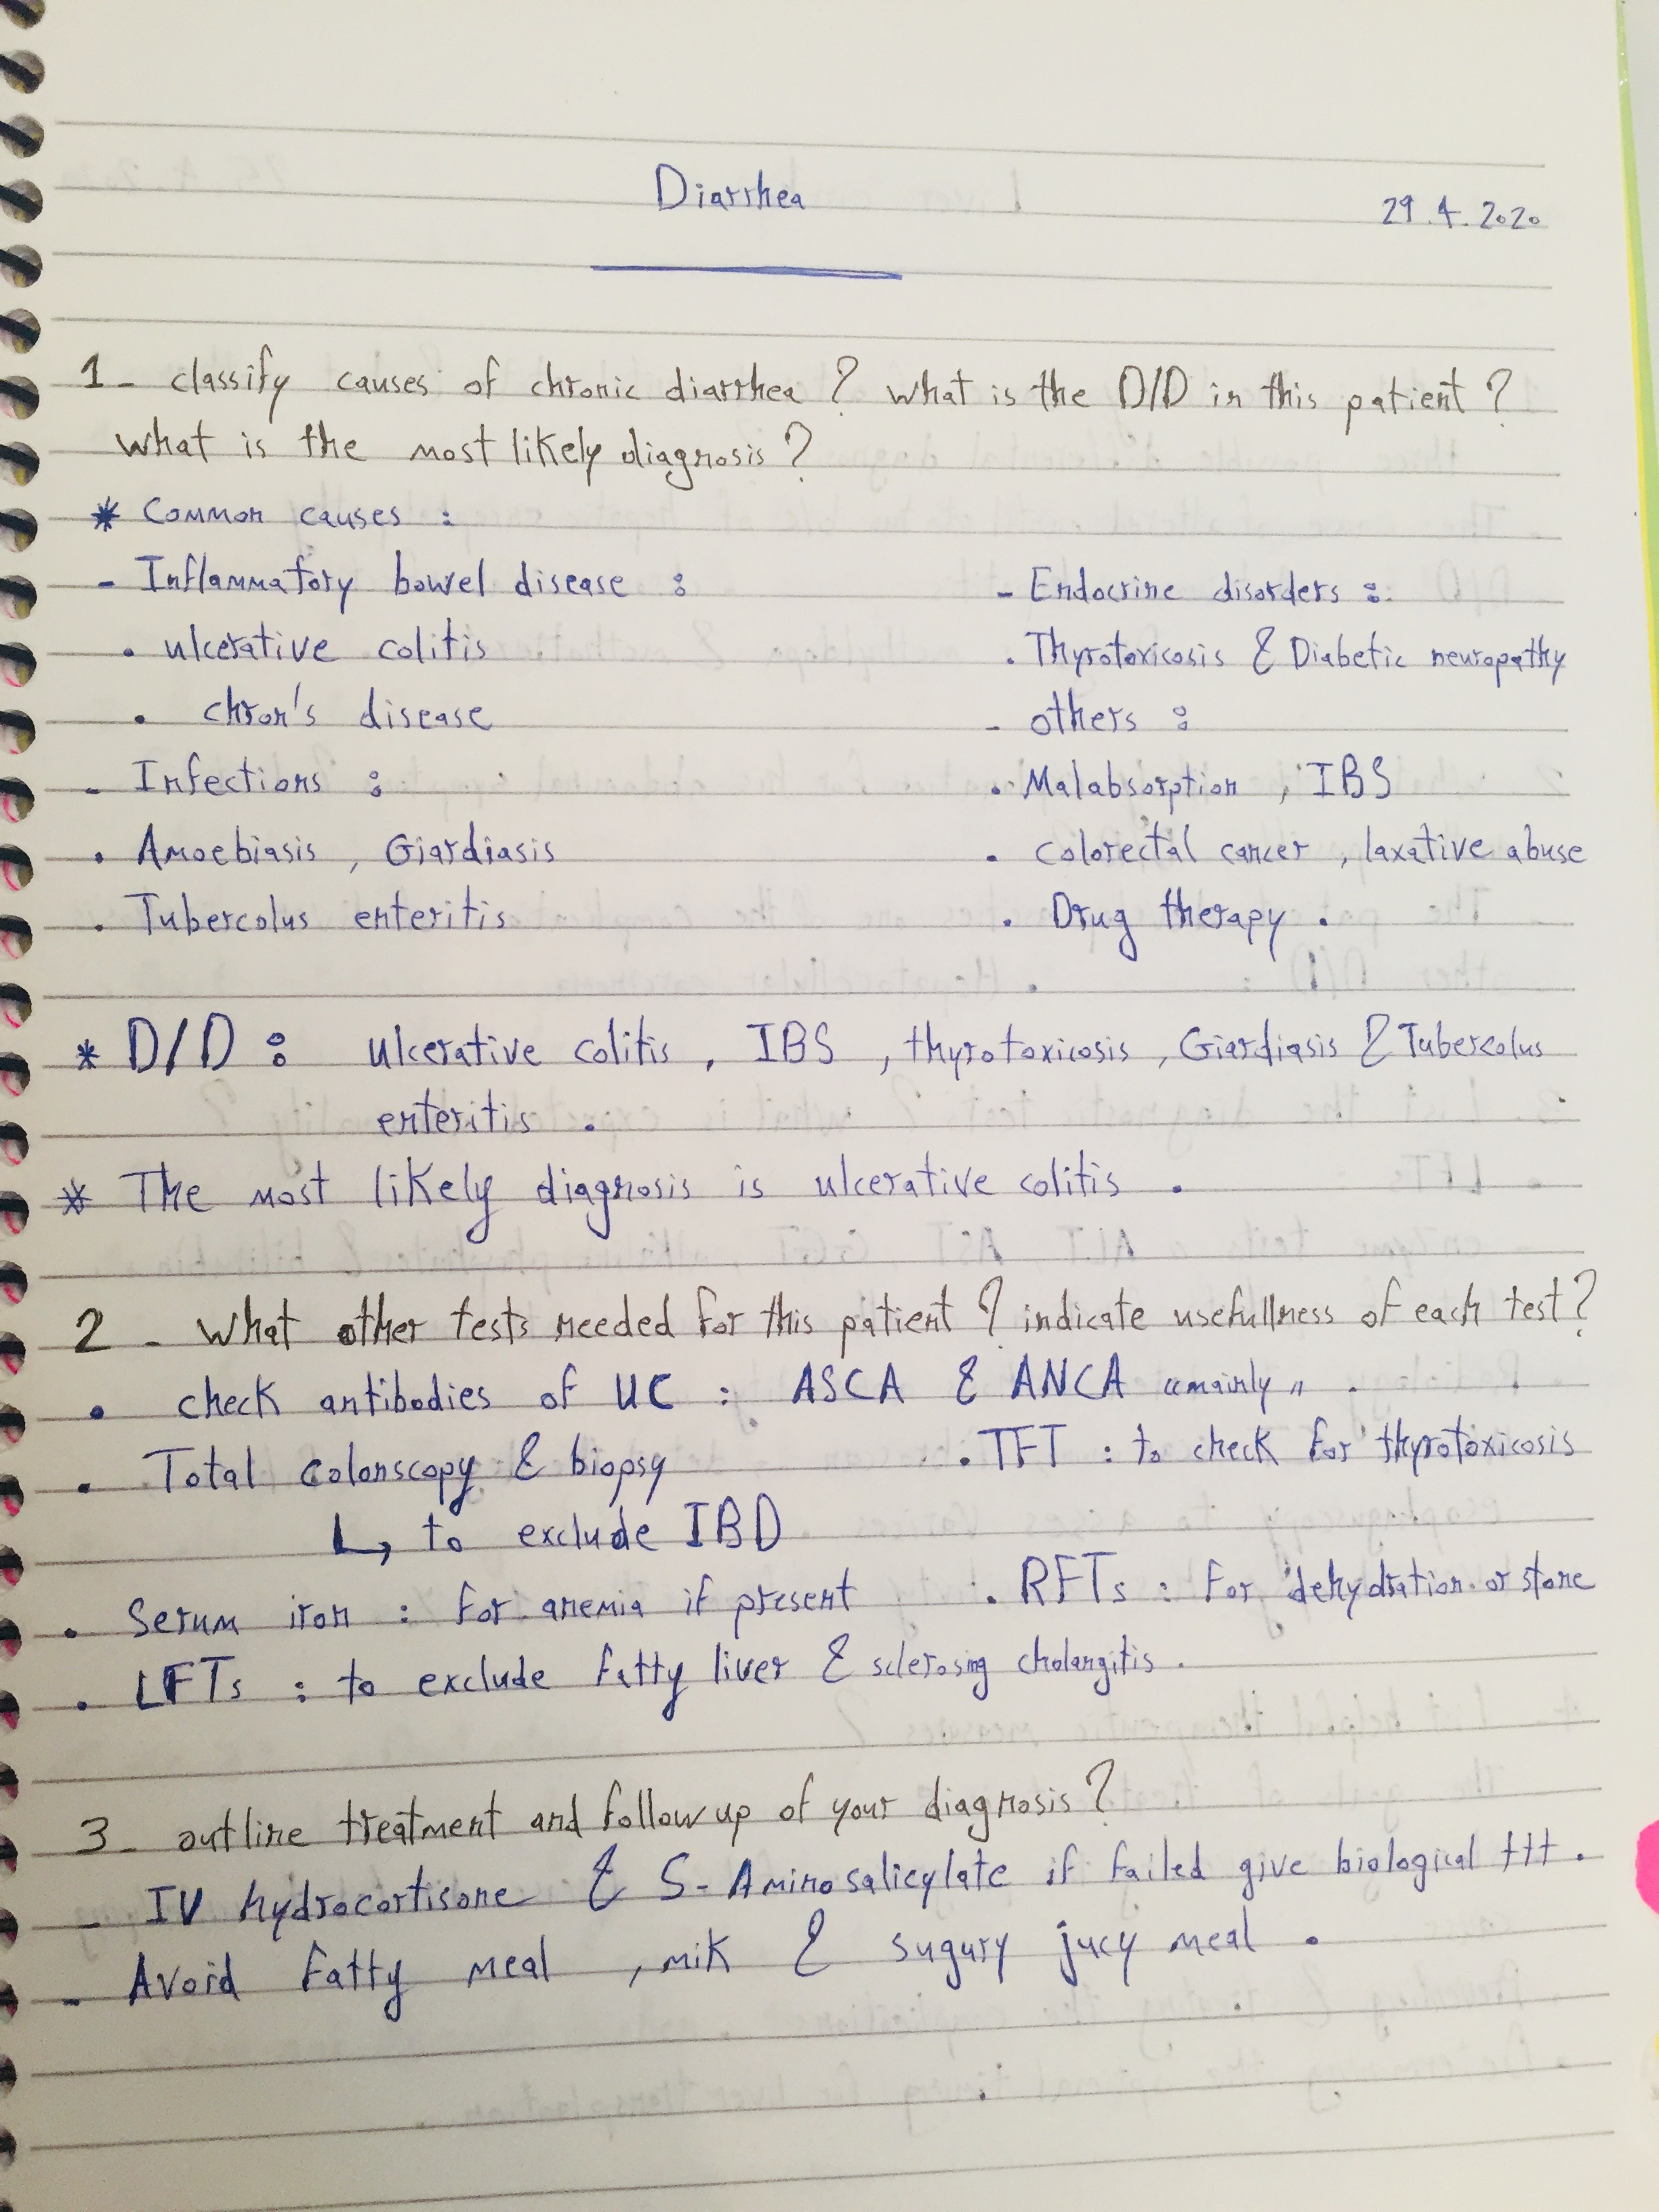 Diarrhea
29.4.2020
1- classify causes of chronic diarrhea ? what is the D/D in this patient ?
what is the most likely diagnosis ?
* Common causes :
- Inflammatory bowel disease :
• ulcerative colitis
• chron's disease
- Infections :
• Amoebiasis , Giardiasis
• Tubercolus enteritis
- Endocrine disorders :
• Thyrotoxicosis & Diabetic neuropathy
- others :
• Malabsorption , IBS
• colorectal cancer , laxative abuse
• Drug therapy .
* D/D : ulcerative colitis , IBS , thyrotoxicosis , Giardiasis & Tubercolus
enteritis .
* The most likely diagnosis is ulcerative colitis .
2 - what other tests needed for this patient ? indicate usefullness of each test ?
• check antibodies of UC : ASCA & ANCA "mainly" .
• Total colonscopy & biopsy • TFT : to check for thyrotoxicosis
↳ to exclude IBD
• Serum iron : for anemia if present • RFTs : for dehydration or stone
• LFTs : to exclude fatty liver & sclerosing cholangitis .
3- outline treatment and follow up of your diagnosis ?
- IV hydrocortisone & 5-Aminosalicylate if failed give biological ttt .
- Avoid fatty meal , mik & sugury jucy meal .